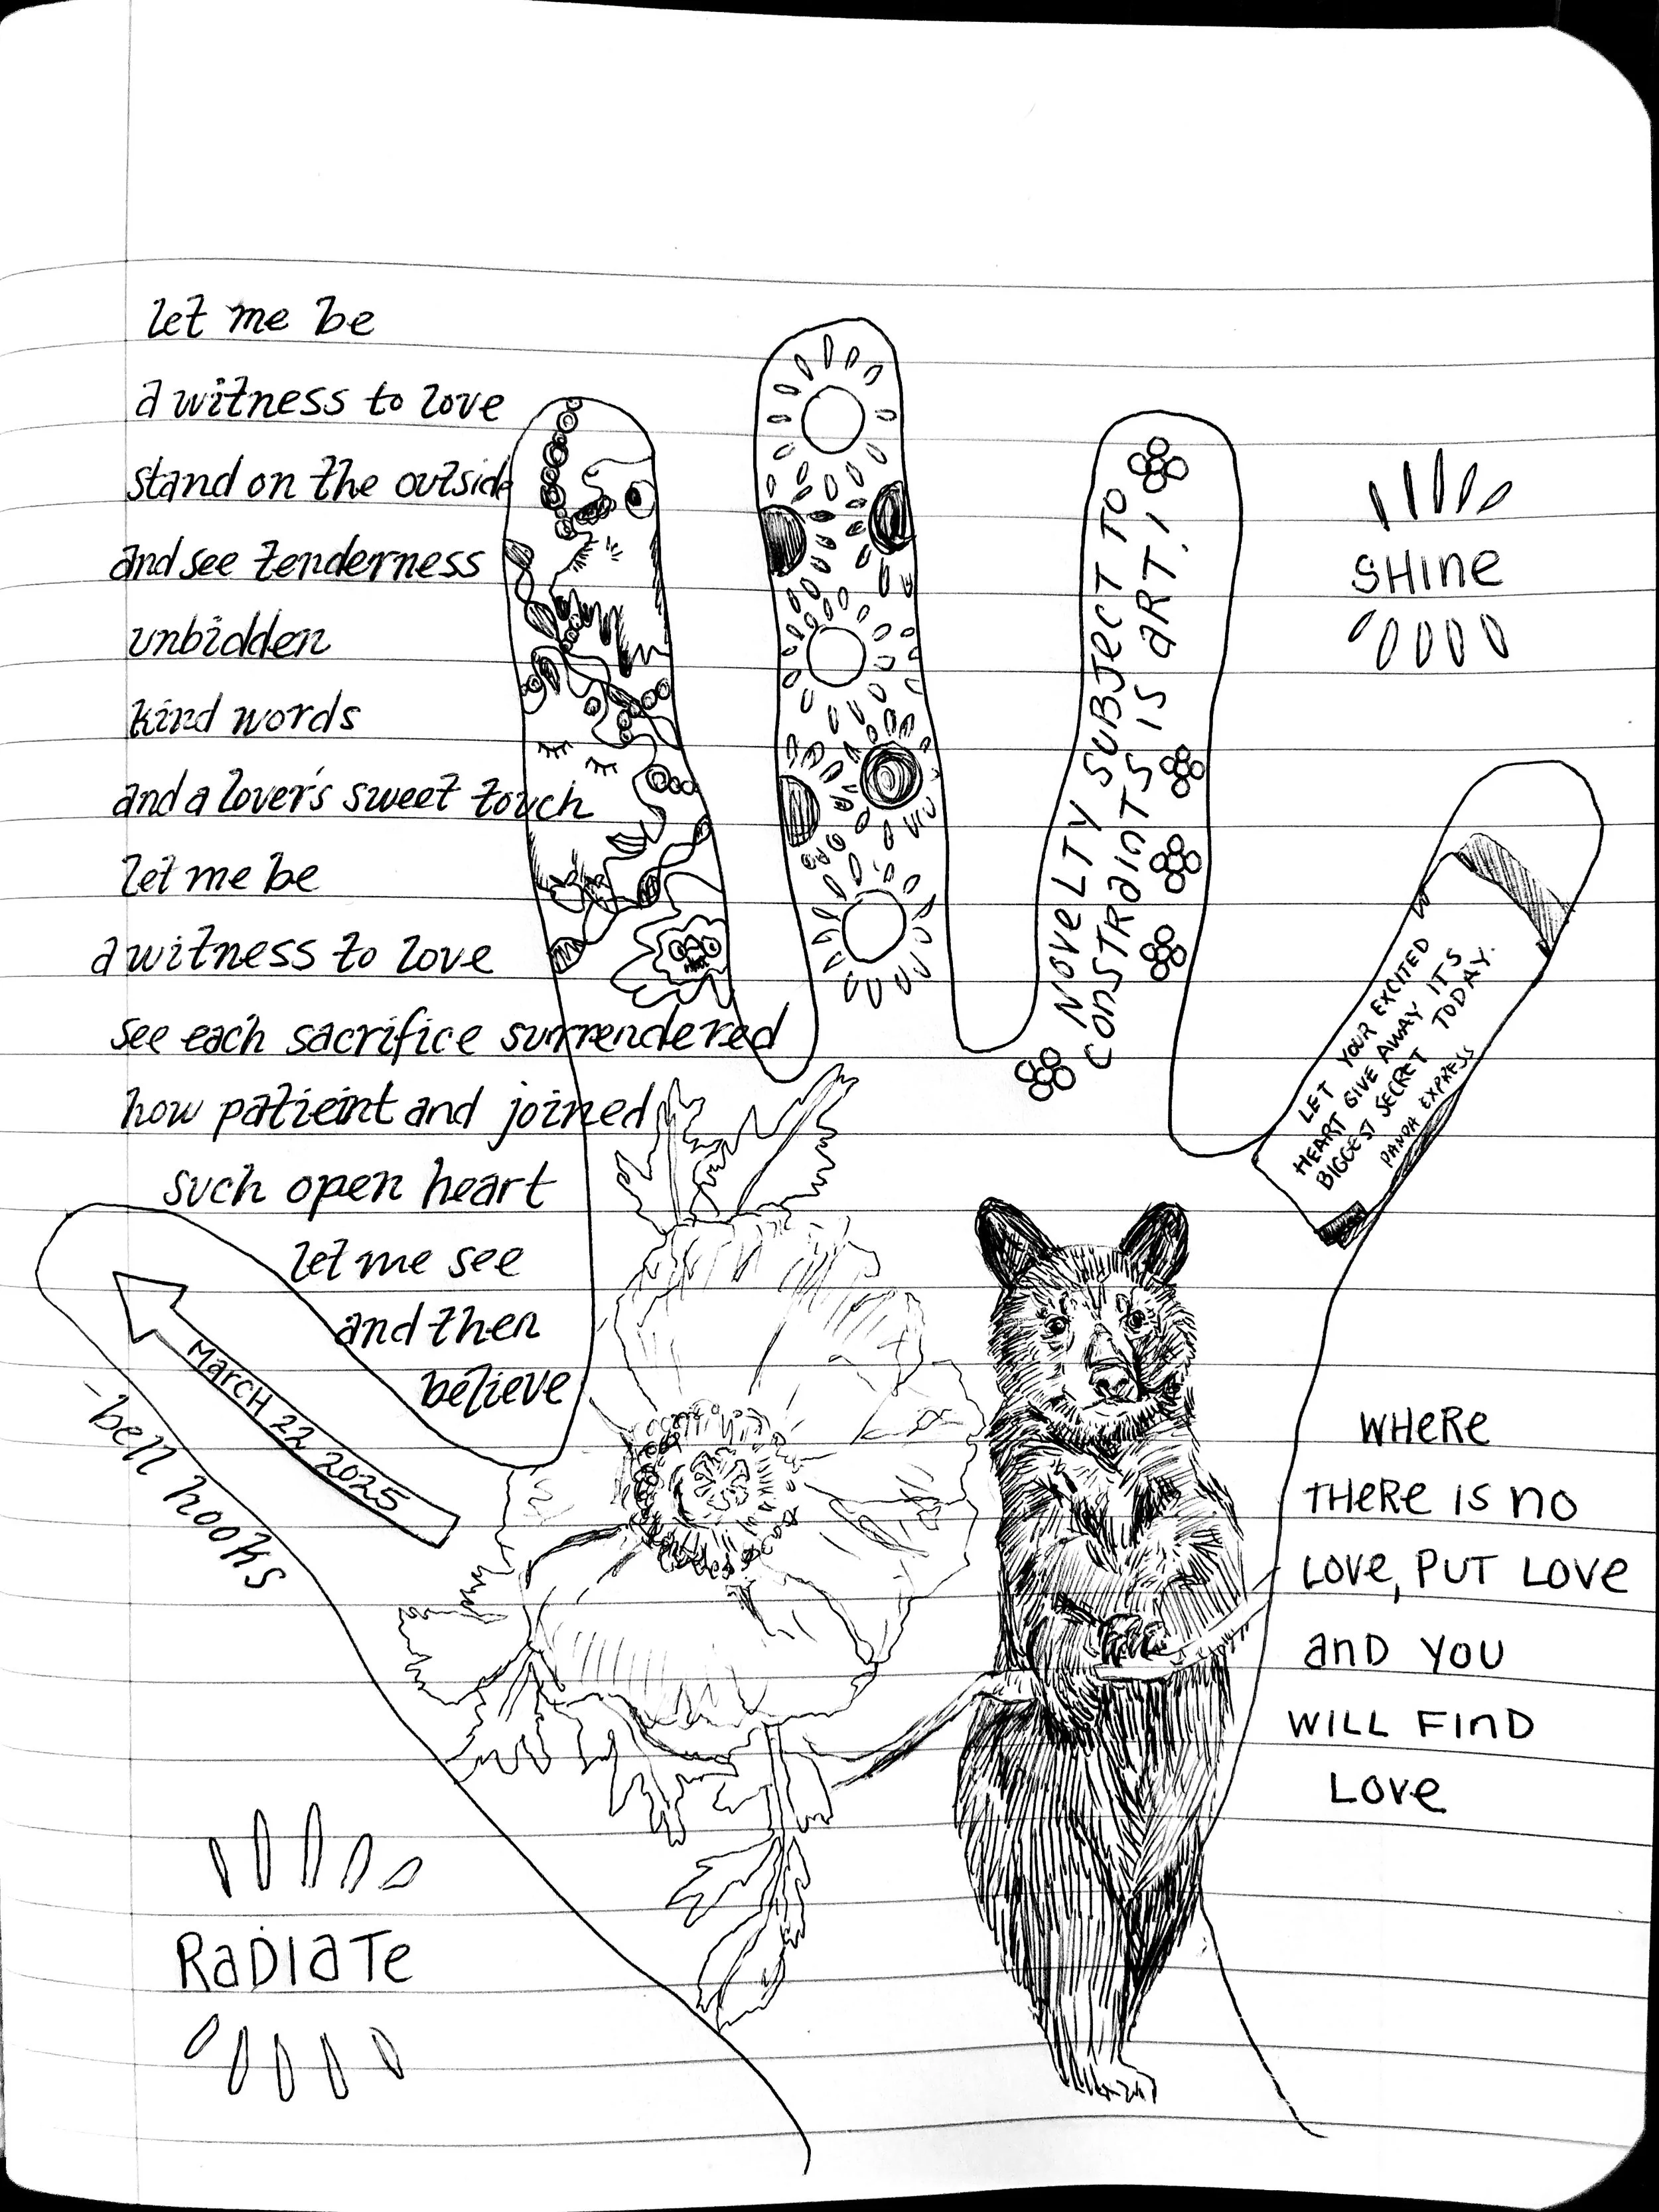 let me be
a witness to love
stand on the outside
and see tenderness
unbidden
kind words
and a lover's sweet touch
let me be
a witness to love
see each sacrifice surrendered
how patient and joined
such open heart
let me see
and then
believe
- bell hooks
MARCH 22 2025
NOVELTY SUBJECT TO
CONSTRAINTS IS ART!
SHINE
LET YOUR EXCITED
HEART GIVE AWAY IT'S
BIGGEST SECRET TODAY.
PANDA EXPRESS
WHERE
THERE IS NO
LOVE, PUT LOVE
AND YOU
WILL FIND
LOVE
RADIATE